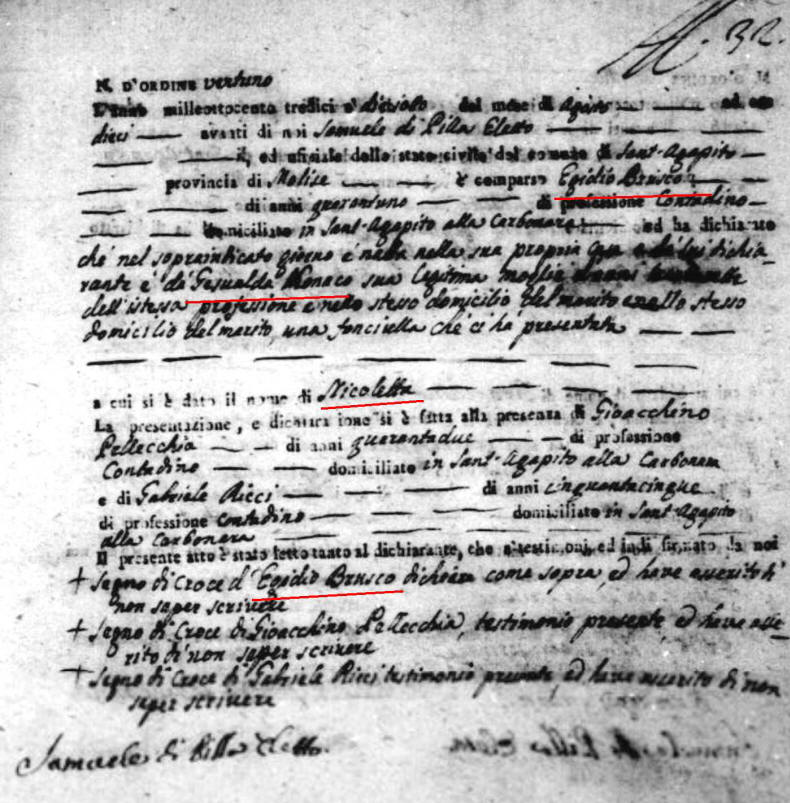 32.
N. D'ORDINE ventuno
L'anno milleottocento tredici a' diciotto del mese di Agosto ad ore
dieci avanti di noi Samuele di Pilla Eletto
ed ufiziale dello stato civile del comune di Sant-Agapito
provincia di Molise è comparso Egidio Brusco
di anni quarantuno di professione Contadino
domiciliato in Sant-Agapito alla Carbonara ed ha dichiarato
chè nel sopraindicato giorno è nata nella sua propria dichia-
rante e dà Gesualda Monaco sua legitima moglie
dell'istessa professione e nello stesso domicilio del marito nello stesso
domicilio del marito, una fanciulla chè ci hà presentata
a cui si è dato il nome di Nicoletta
La presentazione, e dichiarazione si è fatta alla presenza di Gioacchino
Pellecchia di anni quarantadue di professione
Contadino domiciliato in Sant-Agapito alla Carbonara
e di Gabriele Ricci di anni cinquantacinque
di professione contadino domiciliato in Sant-Agapito
alla Carbonara
Il presente atto è stato letto tanto al dichiarante, che a' testimoni, ed indi firmato da noi
+ Segno di Croce d'Egidio Brusco come sopra, ed have asserito di
non saper scrivere
+ Segno di Croce di Gioacchino Pellecchia, testimonio presente, ed have asse-
rito di non saper scrivere
+ Segno di Croce di Gabriele Ricci testimonio presente, ed have asserito di non
saper scrivere
Samuele di Pilla Eletto.